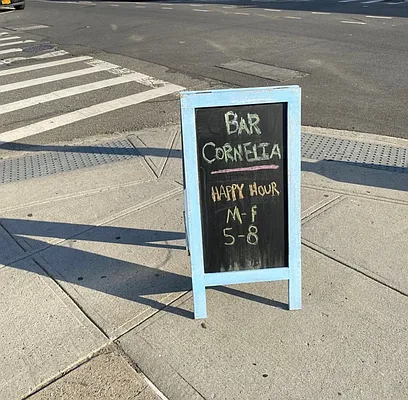 BAR
CORNELIA
HAPPY HOUR
M-F
5-8